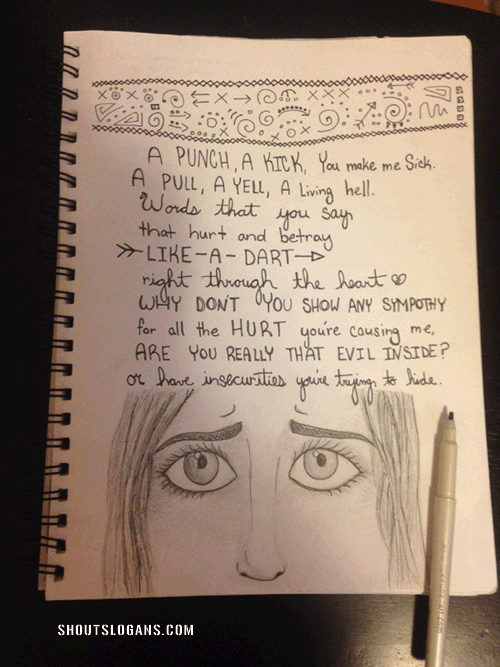 A PUNCH, A KICK, You make me Sick.
A PULL, A YELL, A Living hell.
Words that you say
that hurt and betray
LIKE-A-DART
right through the heart
WHY DON'T YOU SHOW ANY SYMPATHY
for all the HURT you're causing me,
ARE YOU REALLY THAT EVIL INSIDE?
or have insecurities you're trying to hide.
SHOUTSLOGANS.COM